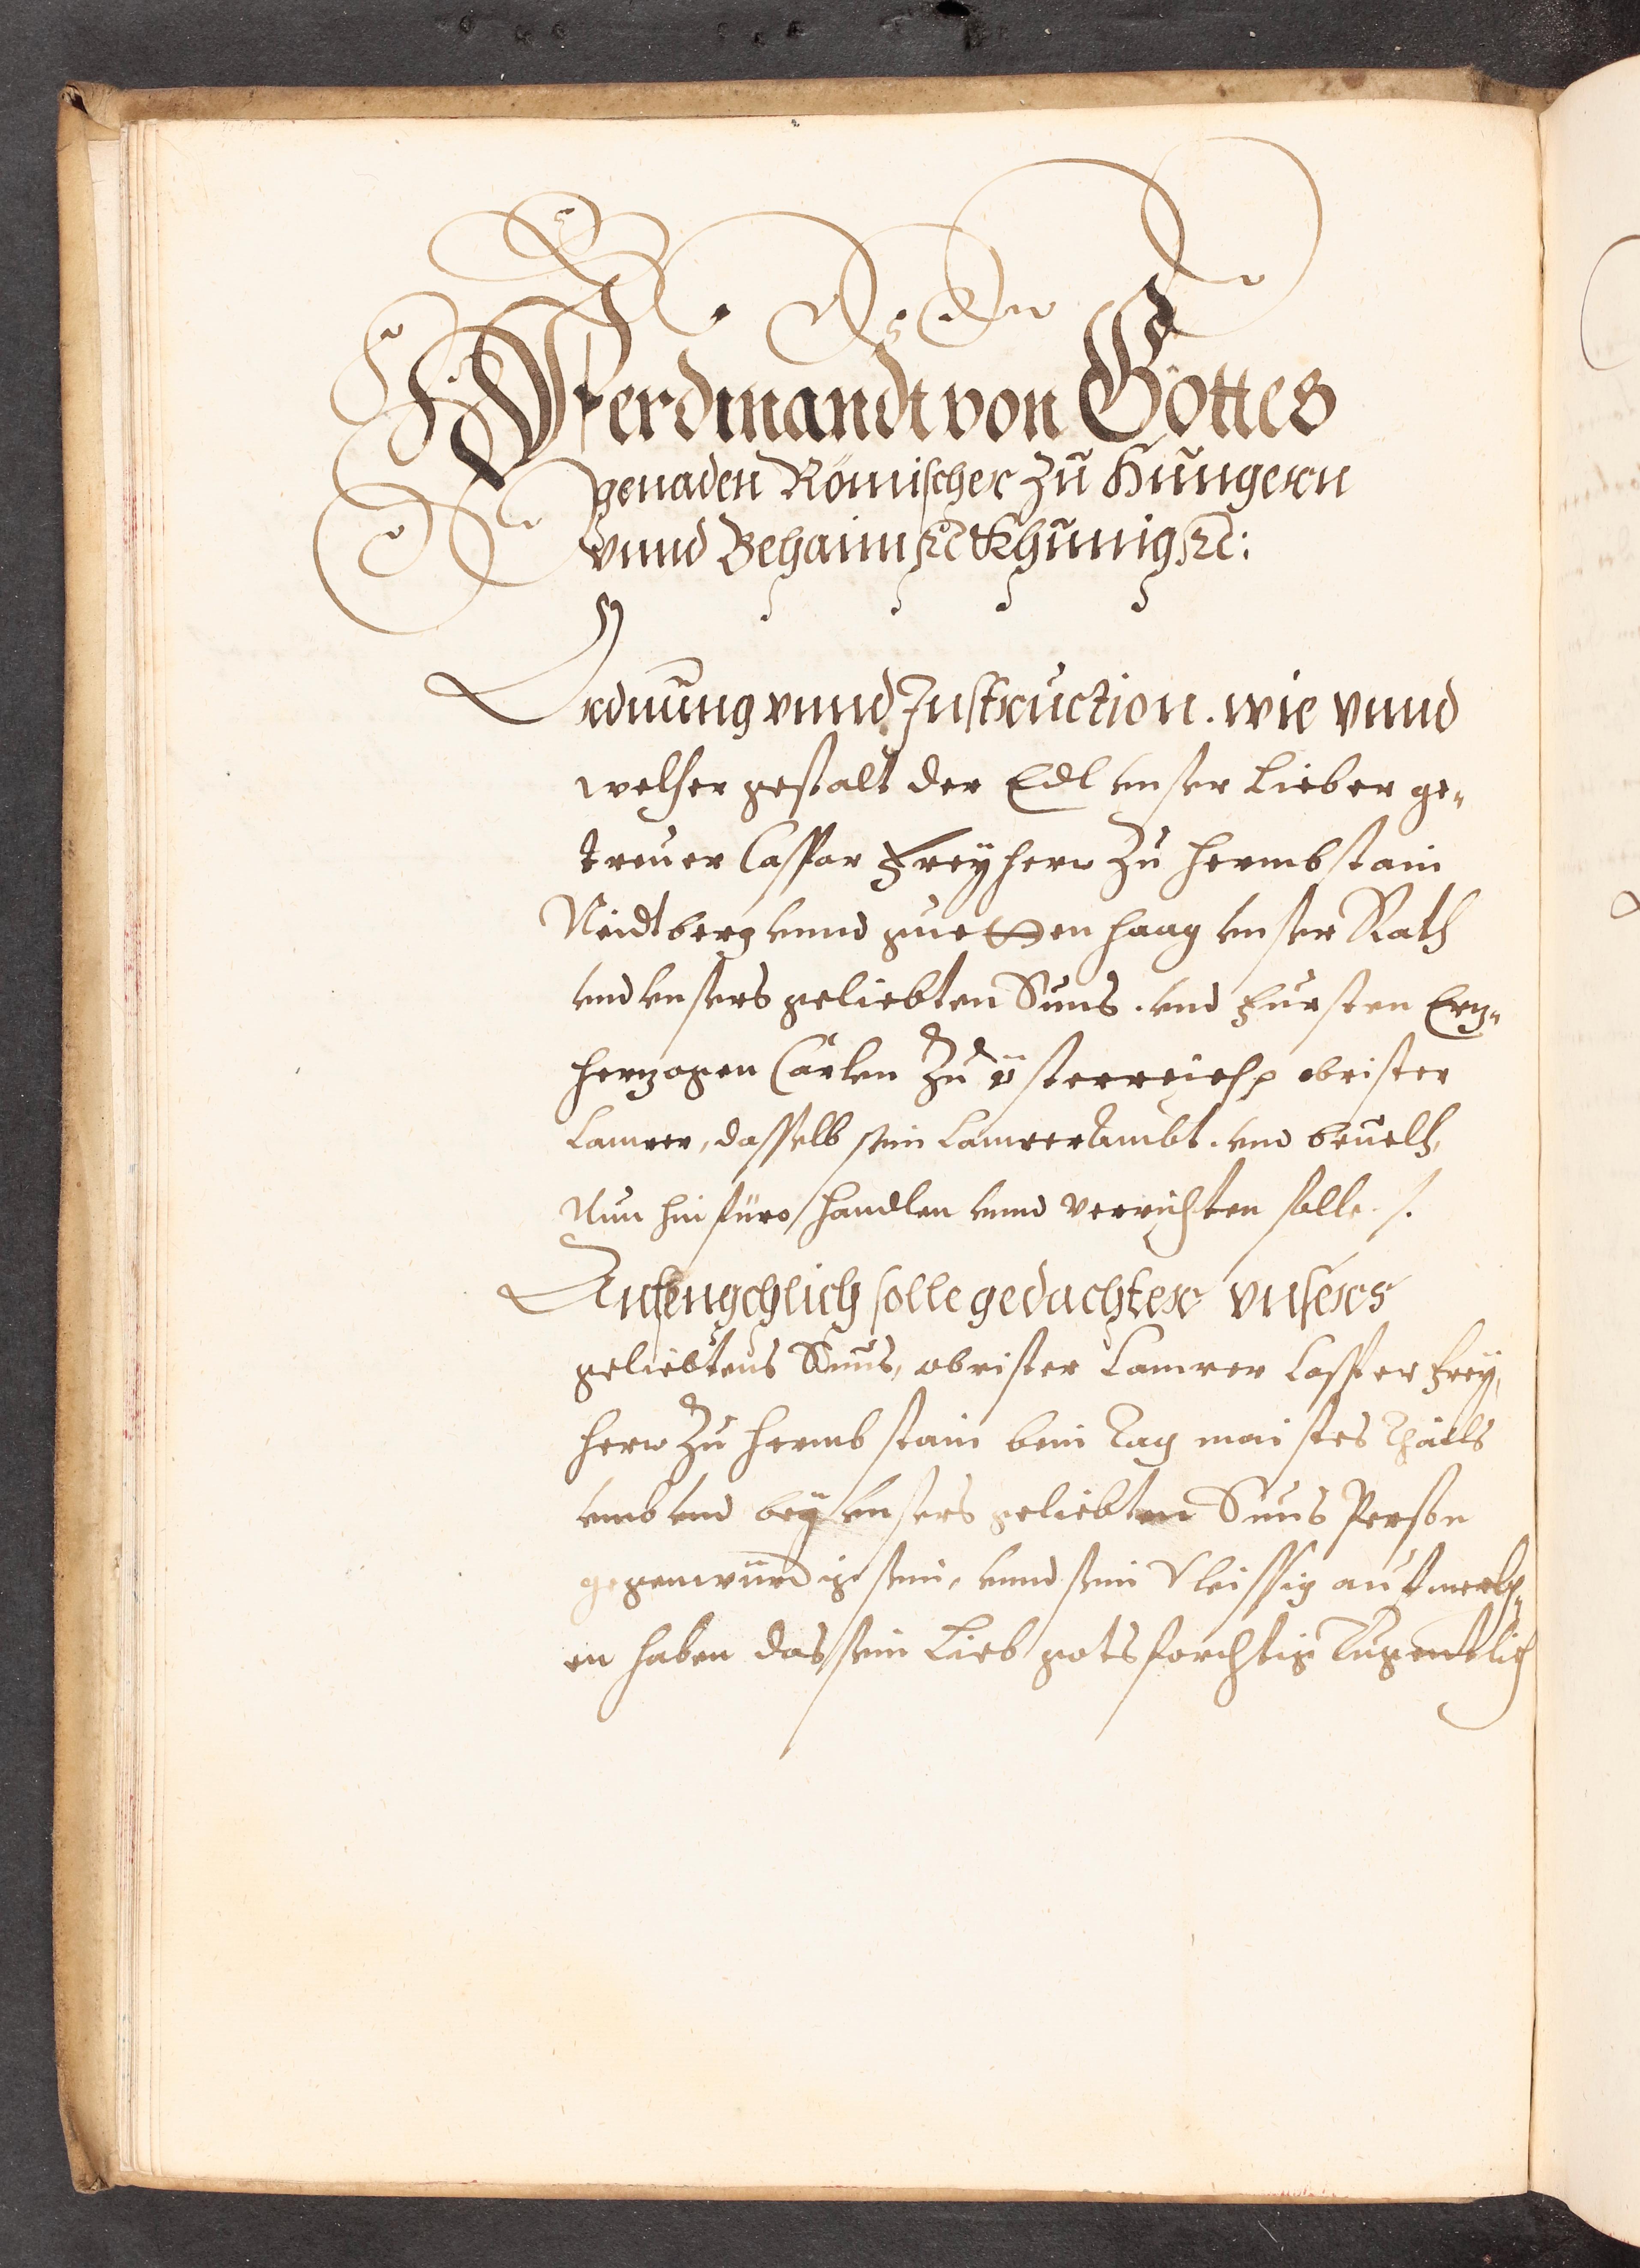 Ferdinandt von Gottes
genaden Römischer zu Hungern
vnnd Behaim ꝛc Khunig ꝛc:
Ordnung vnnd Instruction. wie vnnd
welher gestalt der Edl vnser Lieber ge„
treuer Caspar Freyherr zu Hermbstain
Neidtberg vnnd guettenhaag vnser Rath
vnd vnsers geliebten Suns. vnd Fursten Erz„
herzogen Carlen zu Österreich ꝛc obrister
Camrer, dasselb sein Camrer Ambt. vnd beuelh,
Nun hinfüro handlen vnnd verrichten solle ./.
Anfengchlich solle gedachter vnsers
geliebtens Suns, obrister Camrer Casper Frey„
herr zu Hermbstain beim Tag maistes Thails
vmb vnd bey vnsers geliebten Suns Person
gegenwürdig sein, vnnd sein Vleissig aufmerkh„
en haben das sein Lieb gotsforchtig Tugentlich